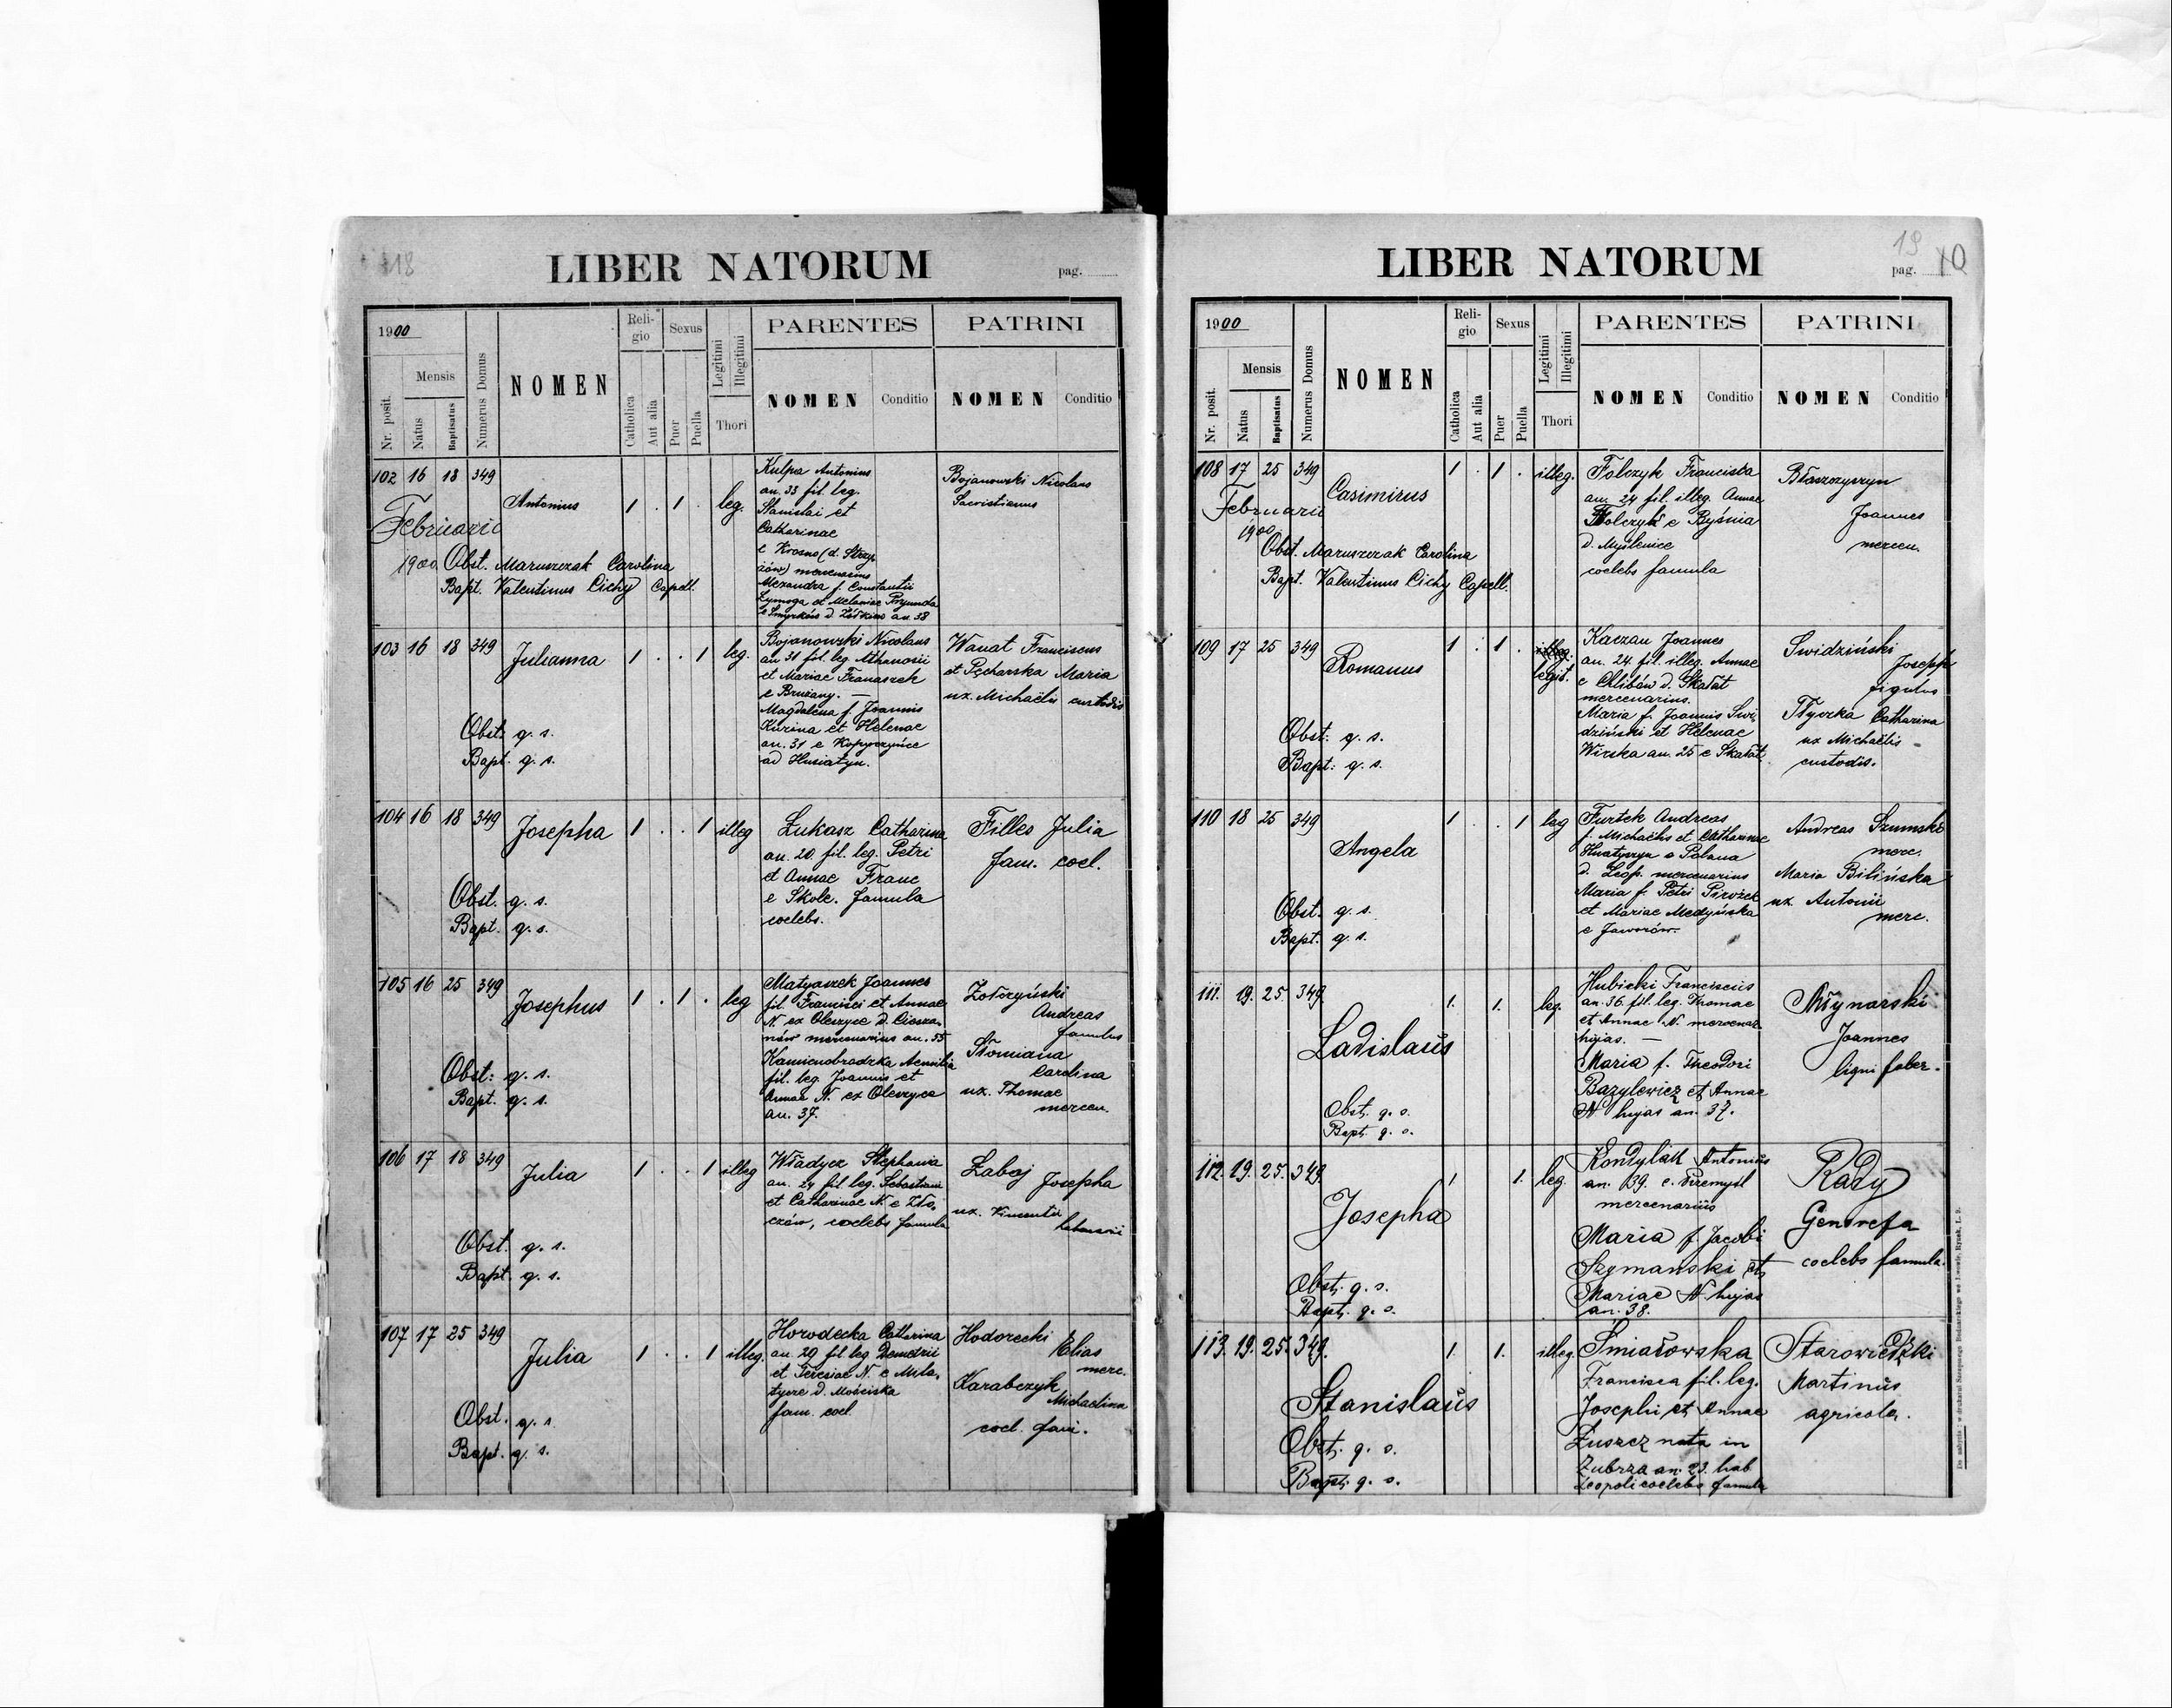 118
LIBER NATORUM
pag.
1900
Nr. posit.
Mensis
Natus
Baptisatus
Numerus Domus
NOMEN
Religio
Catholica
Aut alia
Sexus
Puer
Puella
Legitimi
Illegitimi
Thori
PARENTES
NOMEN
Conditio
PATRINI
NOMEN
Conditio
102 16 18 349
Februarii
1900
Antonius
1 . 1 . leg.
Kulpa Antonius
an. 33 fil. leg.
Stanislai et
Catharinae
e Krosno (d. Strzy-
żów) mercenarius
Alexandra f. Constantii
Zymoga et Melaniae Prymda
an. 38
Bojanowski Nicolaus
Sacristianus
Obst. Maruszczak Carolina
Bapt. Valentinus Cichy Capell.
103 16 18 349
Julianna
1 . . 1 leg.
Bojanowski Nicolaus
an 31 fil. leg. Athanasii
et Mariae Franaszek
e Bruzany. —
Magdalena f. Joannis
Kuzina et Helenae
an. 31 e Kopyczyńce
ad Husiatyn.
Wanat Franciscus
et Pęcharska Maria
ux. Michaëlis custodis
Obst: q. s.
Bapt. q. s.
104 16 18 349
Josepha
1 . . 1 illeg
Łukasz Catharina
an. 20 fil. leg. Petri
et Annae Franc
e Skole. famula
coelebs.
Filles Julia
fam. coel.
Obst. q. s.
Bapt. q. s.
105 16 25 349
Josephus
1 . 1 . leg
Matyaszek Joannes
fil. Francisci et Annae
N. ex Oleszyce d. Ciesza-
nów mercenarius an. 35
Kamienobrodzka Aemilia
fil. leg. Joannis et
Annae N. ex Oleszyce
an. 37.
Żołczyński
Andreas
famulus
Słomiana
Carolina
ux. Thomae
mercen.
Obst: q. s.
Bapt. q. s.
106 17 18 349
Julia
1 . . 1 illeg
Władycz Stephania
an. 24 fil. leg. Sebastiani
et Catharinae N. e Zło-
czów, coelebs famula
Łabaj Josepha
ux. Vincentii
Obst. q. s.
Bapt. q. s.
107 17 25 349
Julia
1 . . 1 illeg.
Horodecka Catharina
an. 29 fil. leg Demetrii
et Teresiae N. e Mila-
tycze d. Mościska
fam. coel.
Hodorecki Elias
merc.
Karabczyk
Michaelina
coel. fam.
Obst. q. s.
Bapt. q. s.
19
LIBER NATORUM
pag. 10
1900
Nr. posit.
Mensis
Natus
Baptisatus
Numerus Domus
NOMEN
Religio
Catholica
Aut alia
Sexus
Puer
Puella
Legitimi
Illegitimi
Thori
PARENTES
NOMEN
Conditio
PATRINI
NOMEN
Conditio
108 17 25 349
Februarii
1900
Casimirus
1 . 1 . illeg.
Folczyk Francisca
an. 24 fil. illeg. Annae
Folczyk e Byśnia
d. Myślenice
coelebs famula
Błaszczyszyn
Joannes
mercen.
Obst. Maruszczak Carolina
Bapt. Valentinus Cichy Capell.
109 17 25 349
Romanus
1 . 1 . illeg.
legit.
Kaczan Joannes
an. 24 fil. illeg. Annae
e Chlibów d. Skałat
mercenarius.
Maria f. Joannis Swi-
dziński et Helenae
Wirska an. 25 e Skałat.
Swidziński
Joseph
figulus
Tłyczka Catharina
ux Michaëlis
custodis.
Obst: q. s.
Bapt: q. s.
110 18 25 349
Angela
1 . . 1 leg
Furtek Andreas
f. Michaëlis et Catharinae
Hnatyszyn e Polana
d. Leop. mercenarius
Maria f. Petri Pirożek
et Mariae Medyńska
e Jaworów.
Andreas Szumski
merc.
Maria Bilińska
ux. Antonii
merc.
Obst. q. s.
Bapt. q. s.
111. 19. 25. 349.
Ladislaus
1. 1. leg.
Hubicki Franciscus
an. 36 fil. leg. Thomae
et Annae N. mercenar.
hujas. —
Maria f. Theodori
Bazylewicz et Annae
N hujas an. 37.
Młynarski
Joannes
ligni faber.
Obst. q. s.
Bapt. q. s.
112. 19. 25. 349.
Josepha
1. 1. leg.
Kondylak Antonius
an. 39. e. Przemyśl
mercenarius
Maria f. Jacobi
Szymanski et
Mariae N. hujas
an. 38.
Rady
Genovefa
coelebs famula.
Obst. q. s.
Bapt. q. s.
113. 19. 25. 349.
Stanislaus
1. 1. illeg.
Smiałowska
Francisca fil. leg.
Josephi et Annae
Łuszcz nata in
Zubrza an. 23. hab
Leopoli coelebs famula
Martinus
agricola.
Obst. q. s.
Bapt. q. s.